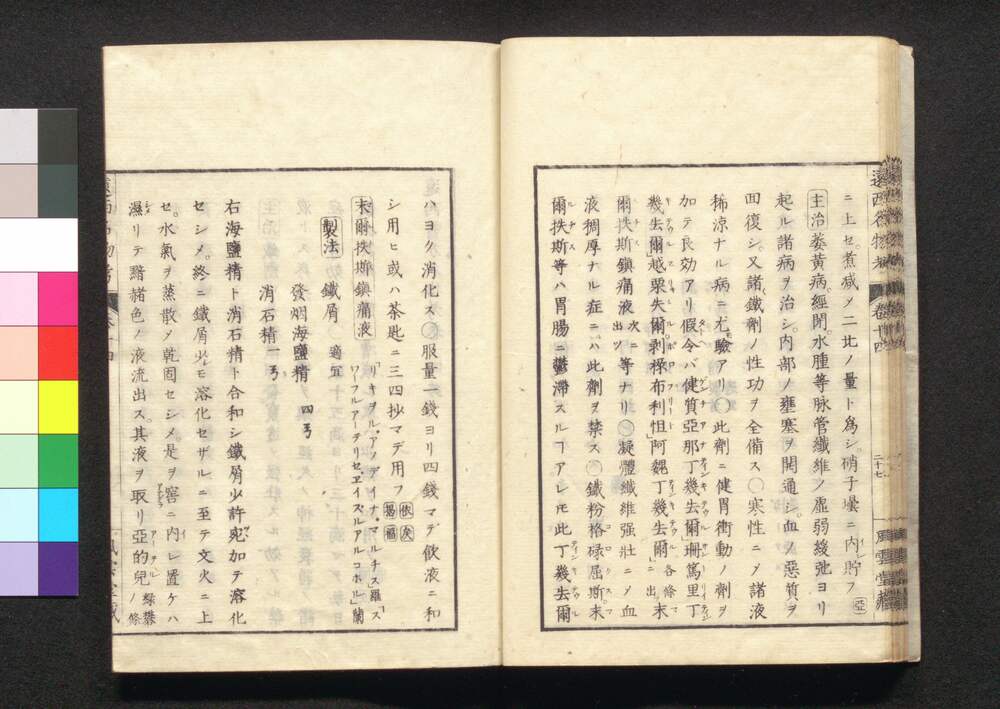 ニ上セ。煮減メ二比ノ量ト爲シ。硝子壜ニ内貯フ 亞
主治 萎黄病。經閉。水腫等脉管纖維ノ虚弱緩弛ヨリ
起ル諸病ヲ治シ。内部ノ壅塞ヲ開通シ。血ノ惡質ヲ
面復シ。又諸鐵劑ノ性功ヲ全備ス〇寒性ニメ諸液
稀涼ナル病ニ尤驗アリ〇此劑ニ健胃衝動ノ劑ヲ
加テ良効アリ假令バ健質亞那丁幾去爾」珊篤里丁
幾去爾」越栗失爾剥祿布利怛」阿魏丁幾去爾」各條末
爾扶斯鎮痛液 次ニ出ツ 等ナリ〇凝體纖維强壯ニメ血
液稠厚ナル症ニハ此劑ヲ禁ス〇鐵粉格碌屈斯」末
爾扶斯等ハ胃腸ニ鬱滞スルヿアレ𪜈此丁幾去爾
遠西名物考 卷十四 二十七 風雲堂藏
ハヨク消化ス〇服量一錢ヨリ四錢マデ飲液ニ和
シ用ヒ或ハ茶匙ニ三四抄マデ用フ 依次 葛福
末爾扶斯鎮痛液 「リキヲル・アノデイナ・マルチス羅「スワーフルアーチリセ・ヱイスルアルコホル」蘭
製法 鐵屑 適宜
發烟海鹽精 四弓
消石精 一弓
右海鹽精ト消石精ト合和シ鐵屑少許宛加テ溶化
セシメ。終ニ鐵屑少モ溶化セザルニ至テ文火ニ上
セ。水氣ヲ蒸散メ乾固セシメ是ヲ窖ニ内レ置ケハ
濕リテ黯赭色ノ液流出ス。其液ヲ取リ亞的兒 緑礬ノ條